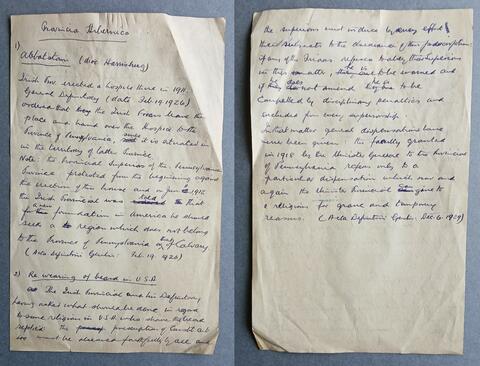 Provincia Hibernica
1)
Abbotstown (dioc Harrisburg)
Irish Prov erected a hospice there in 1911.
General Definitory (date Feb. 19. 1926)
ordered that the Irish Friars leave the
place and hand over the Hospice to the
Province of Pennsylvania, since it is situated in
in the territory of latter Province.
Note: the Provincial Superiors of the Pennsylvania
Province protested from the beginning against
the erection of this house and in June 1912
the Irish Provincial was told that
for a foundation in America he should
seek a region which does not belong
to the Province of Pennsylvania or that of Calvary
(Acta Definitorii Gener: Feb. 19. 1926)
2) Re wearing of beard in U.S.A
The Irish Provincial and his Definitory
having asked what should be done in regard
to some religious in U.S.A. who shave the beard
replied: the prescription of Constit
must be observed faithfully by all and
the superiors must induce by every effort
their subjects to the observance of this prescription
If any of the Friars refuse to obey their superiors
in this matter, he is to be warned and
if he does not amend he is to be
compelled by disciplinary penalties and
excluded from every superiorship.
In that matter general dispensations have
never been given: the faculty granted
in 1918 by the Minister General to the Provincial
of Pennsylvania refers only to a
particular dispensation which now and
again the Minister Provincial can give to
a religious for grave and temporary
reasons. (Acta Definitorii Gener: Dec. 6. 1929)